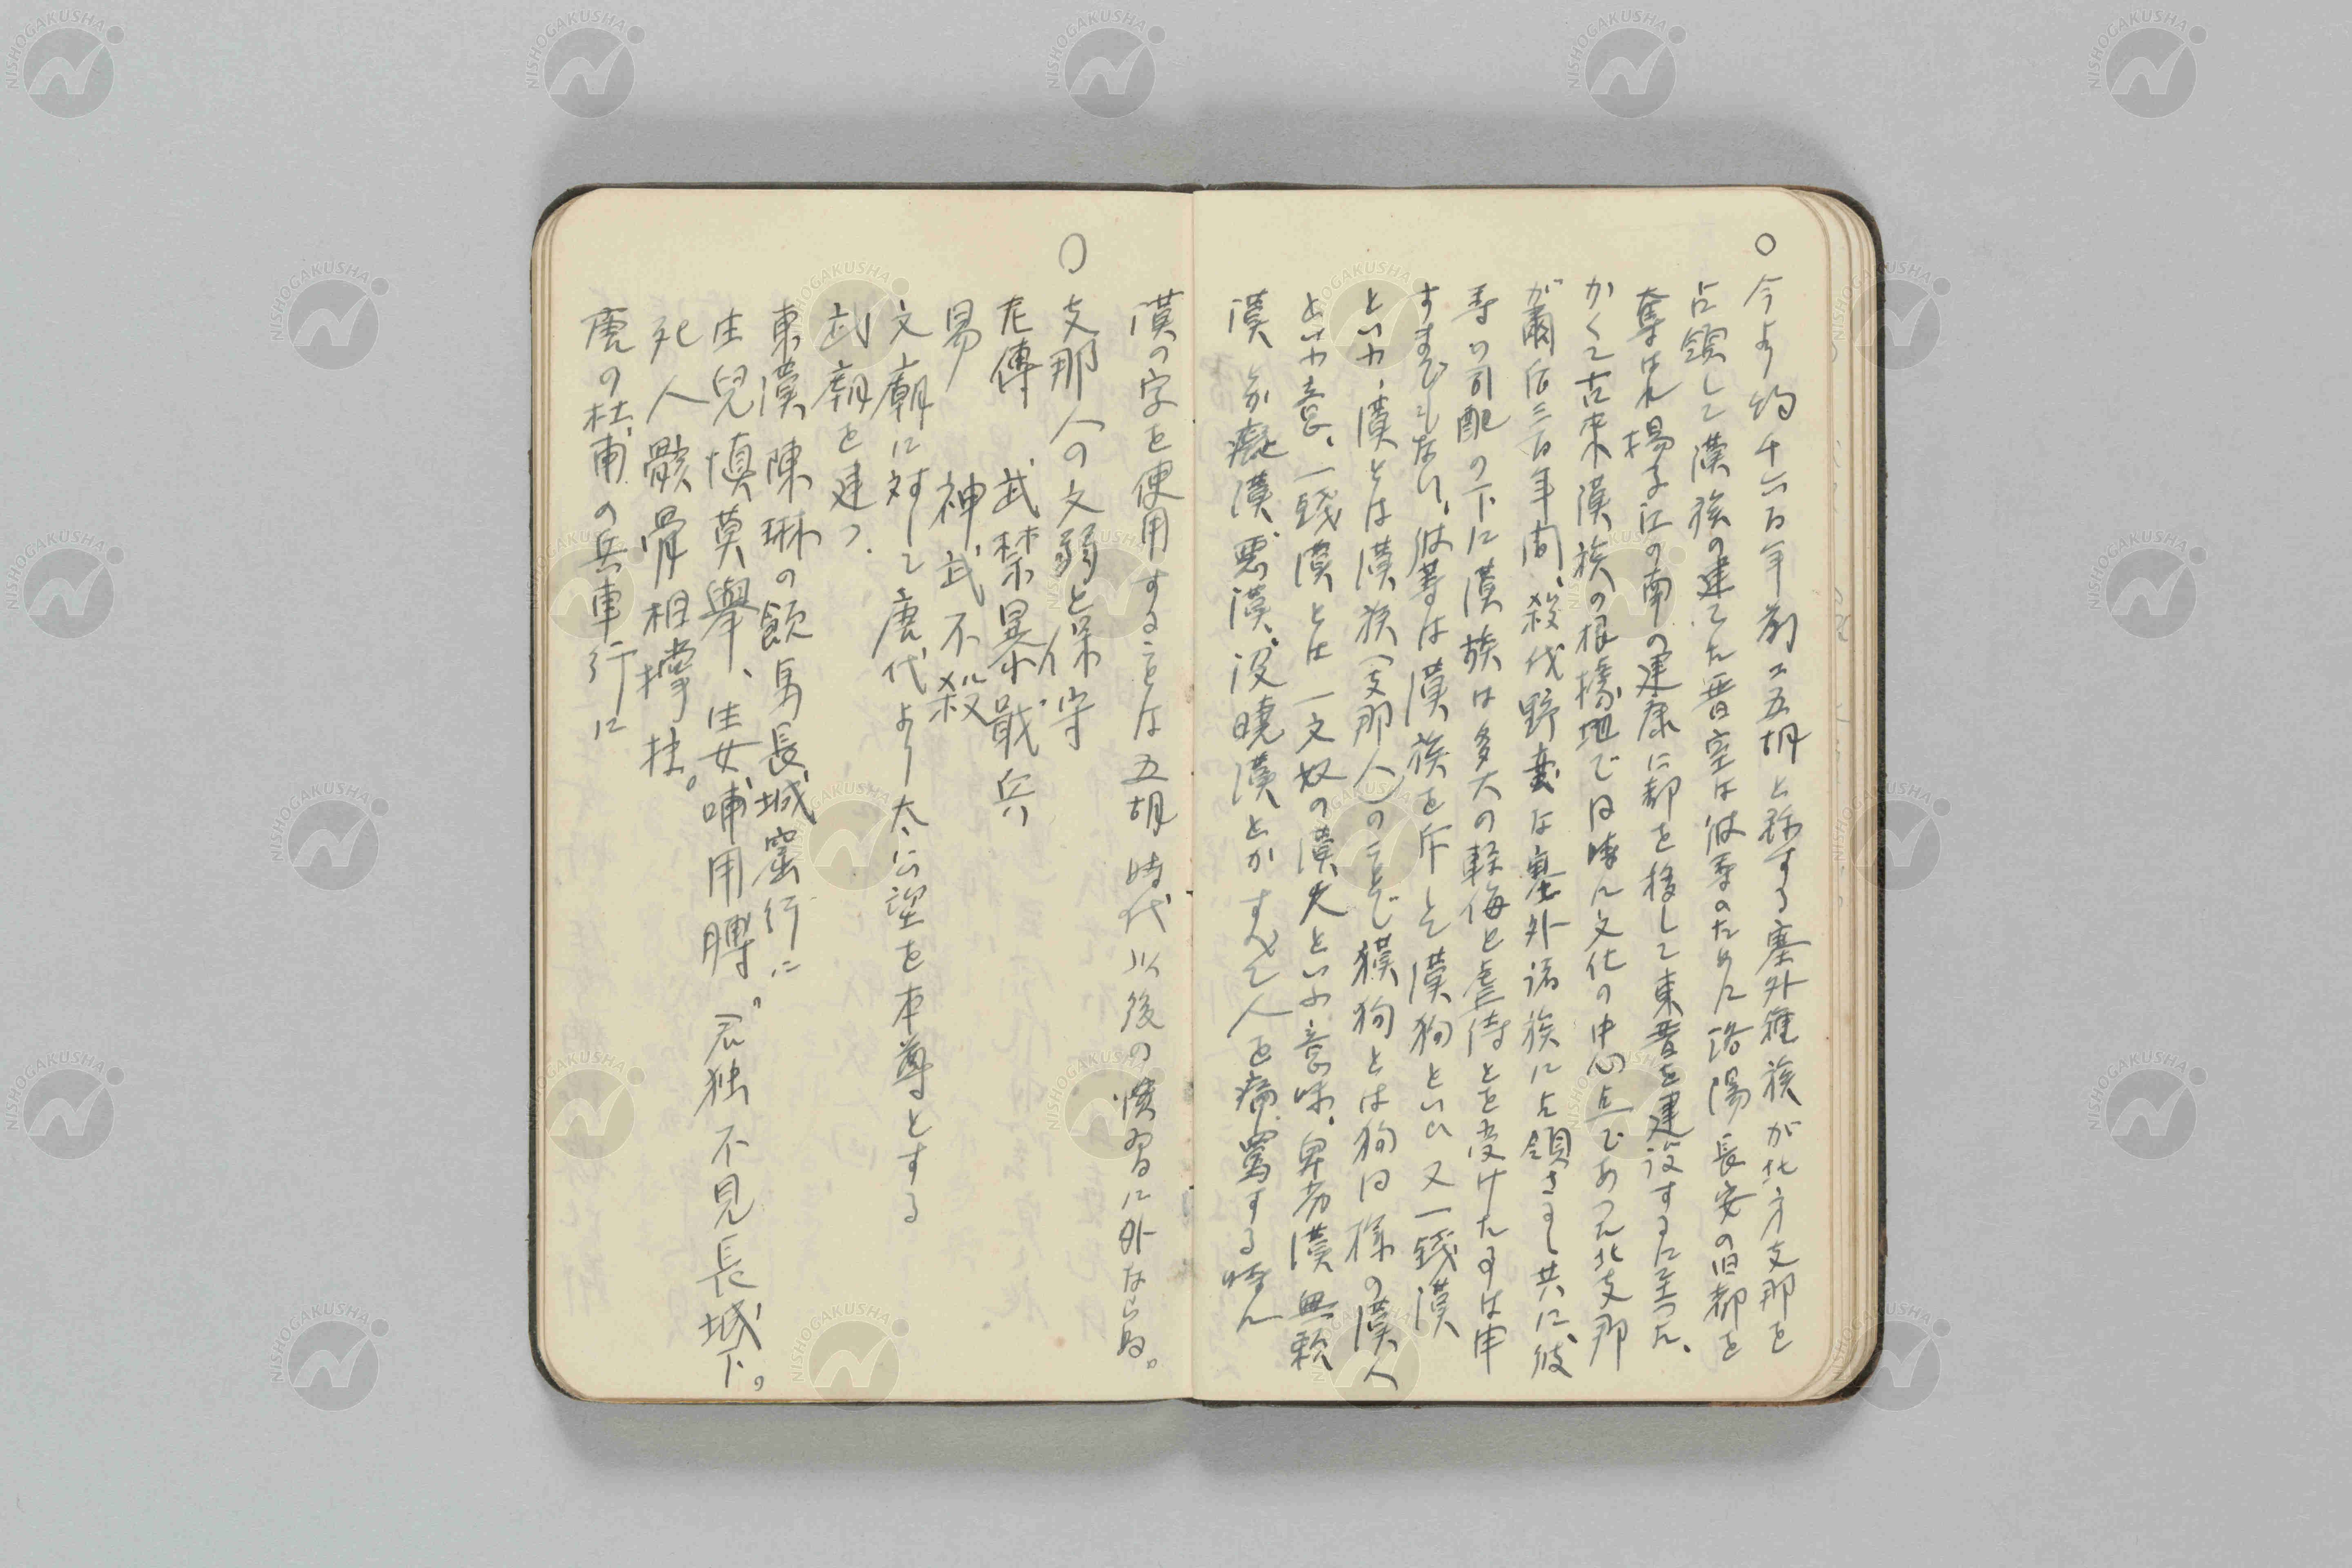 ○今より約千六百年前に五胡と称する塞外種族が北方支那を
占領して漢族の建てた晋室は彼等のために洛陽長安の旧都を
奪はれ揚子江の南の建康に都を移して東晋を建設するに至つた、
かくて古来漢族の根拠地で同時に文化の中心点であつた北支那
が爾后三百年間、殺伐野蛮な塞外諸族に占領されし共に彼
等の司配の下に漢族は多大の軽侮と虐待とを受けたるは申
すまでもない、彼等は漢族を斥して漢狗といひ又一銭漢
といふ、漢とは漢族(支那人)のことで漢狗とは狗同様の漢人
といふ意、一銭漢とは一文奴の漢夫といふ意味、卑劣漢無頼
漢、痴漢、悪漢、没暁漢とかすべて人を痛罵する時に
漢の字を使用することは五胡時代以後の慣習に外ならぬ。
○支那人の文弱と保守
左傳 武禁暴戢兵
易 神武不殺
文廟に対して唐代より太公望を本尊とする
武廟を建つ.
東漢陳琳の飲馬長城窟行に
生兒慎莫擧、生女哺用脯。君独不見長城下。
死人骸骨相撐拄。
唐の杜甫の兵車行に
NISHOGAKUSHA